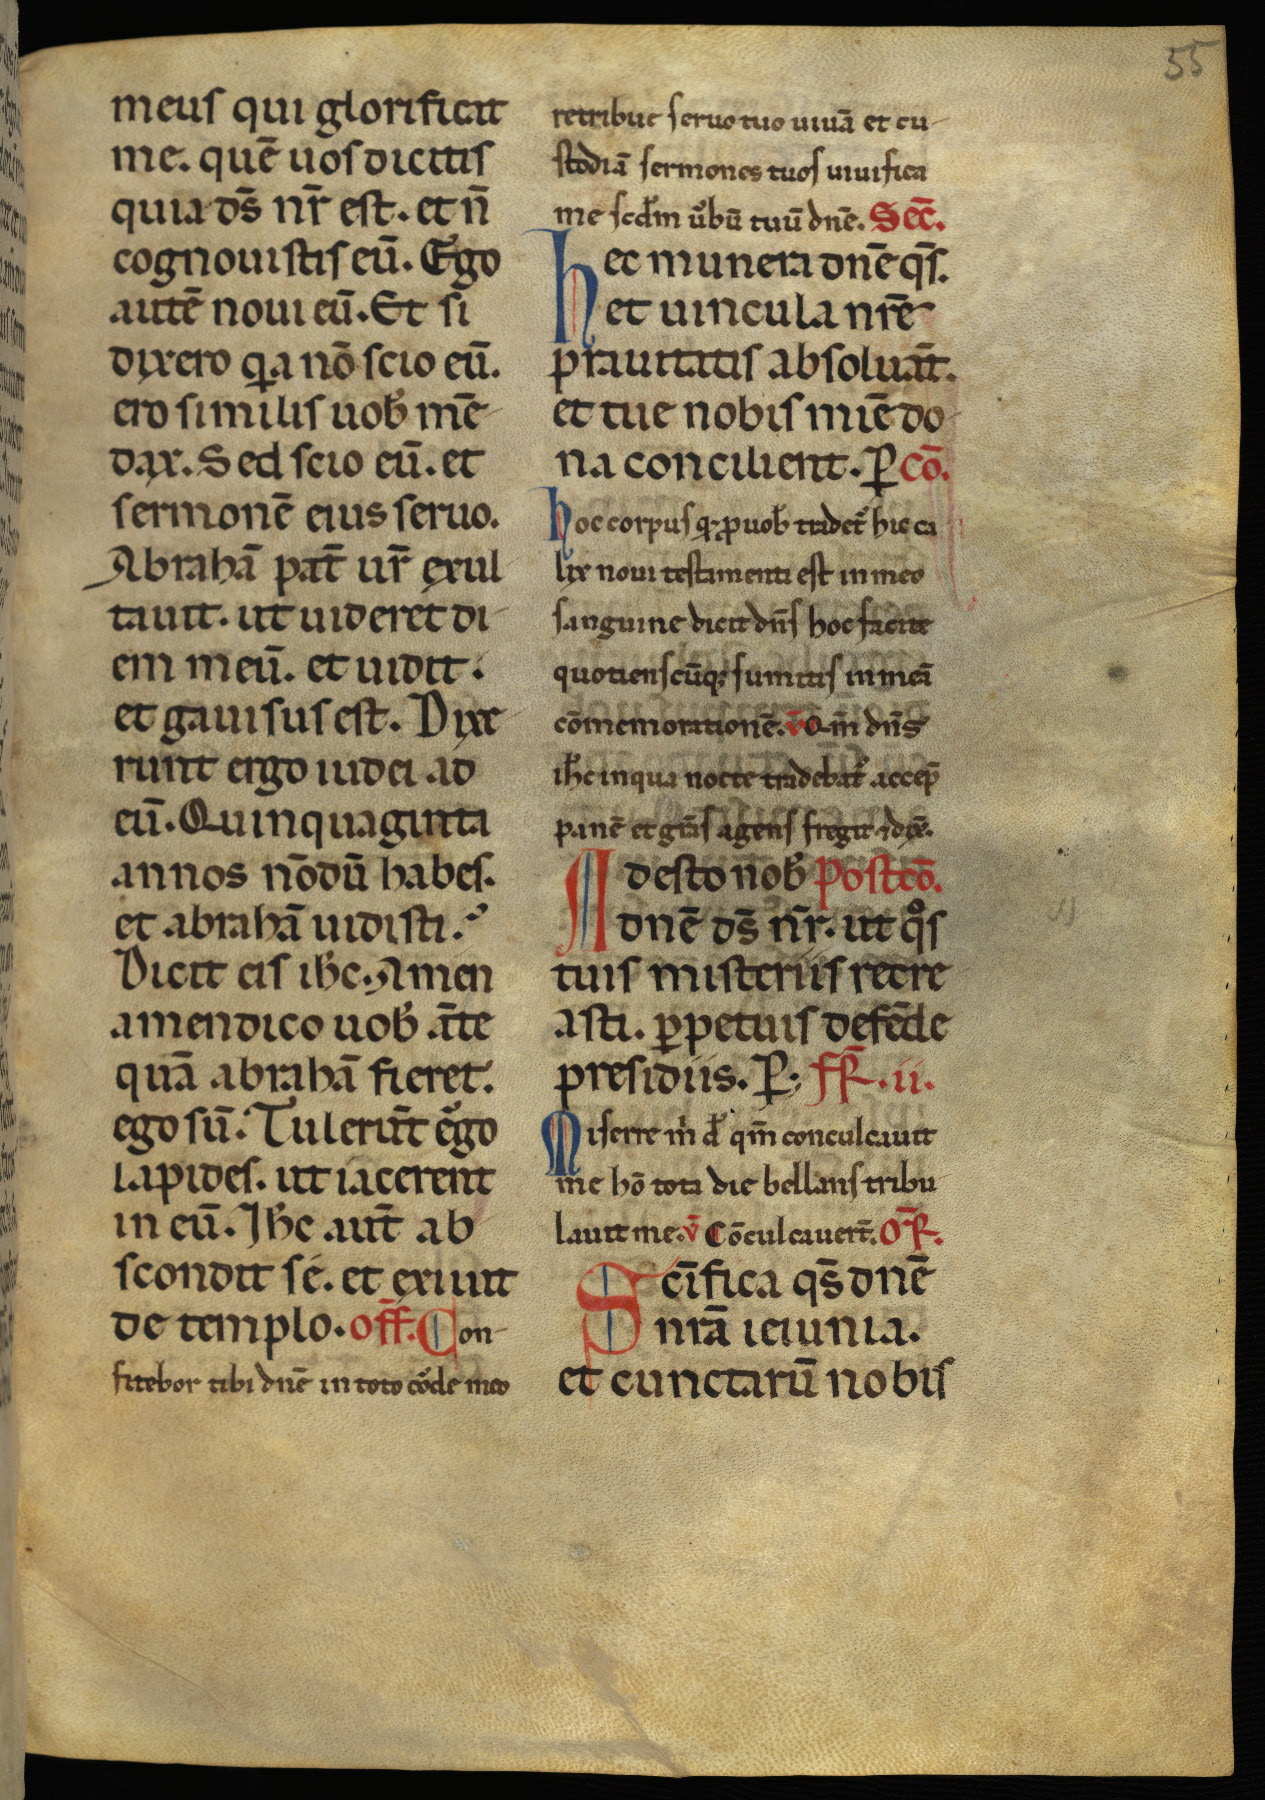 55
meus qui glorificat
me. quē uos dicitis
quia ds̄ nr̄ est. et n̄
cognouistis eū. Ego
autē noui eū. Et si
dixero qa nō scio eū.
ero similis uob̄ mē
dax. Sed scio eū. et
sermonē eius seruo.
Abrahā pat̄ ur̄ exul
tauit. ut uideret di
em meū. et uidit.
et gauisus est. Dixe
runt ergo iudei ad
eū. Quinquaginta
annos nōdū habes.
et abrahā uidisti.
Dicit eis ih̄c. Amen
amen dico uob̄ āte
quā abrahā fieret.
ego sū. Tulerūt ego
lapides. ut iacerent
in eū. Ih̄c aut̄ ab
scondit se. et exiuit
de templo. off̄. Con
fitebor tibi dnē in toto corde meo
retribue seruo tuo uiuā et cu
stodiā sermones tuos uiuifica
me scdm̄ ūbū tuū dnē. Sec̄.
hec munera dnē qs̄.
et uincula nrē
prauitatis absoluāt.
et tue nobis miē do
na concilient. P̄ cō.
hoc corpus qd̄ p uob̄ tradet̄ hic ca
lix noui testamenti est in meo
sanguine dicit dn̄s hoc facite
quotienscūq; sumitis in meā
cōmemorationē. v̄ Qm̄ dn̄s
ih̄c in qua nocte tradebat̄ accep̄
panē et grās agens fregit ⁊ dix̄.
Adesto nob̄ Postcō.
dnē ds̄ nr̄. ut qos
tuis misteriis recre
asti. ꝑpetuis defēde
presidiis. P̄; fR̄. ii.
Miserere m̄ d̄ qm̄ conculcauit
me hō tota die bellans tribu
lauit me. v̄ Cōculcauert̄. OR̄.
Scīfica qs̄ dnē
nrā ieiunia.
et cunctarū nobis